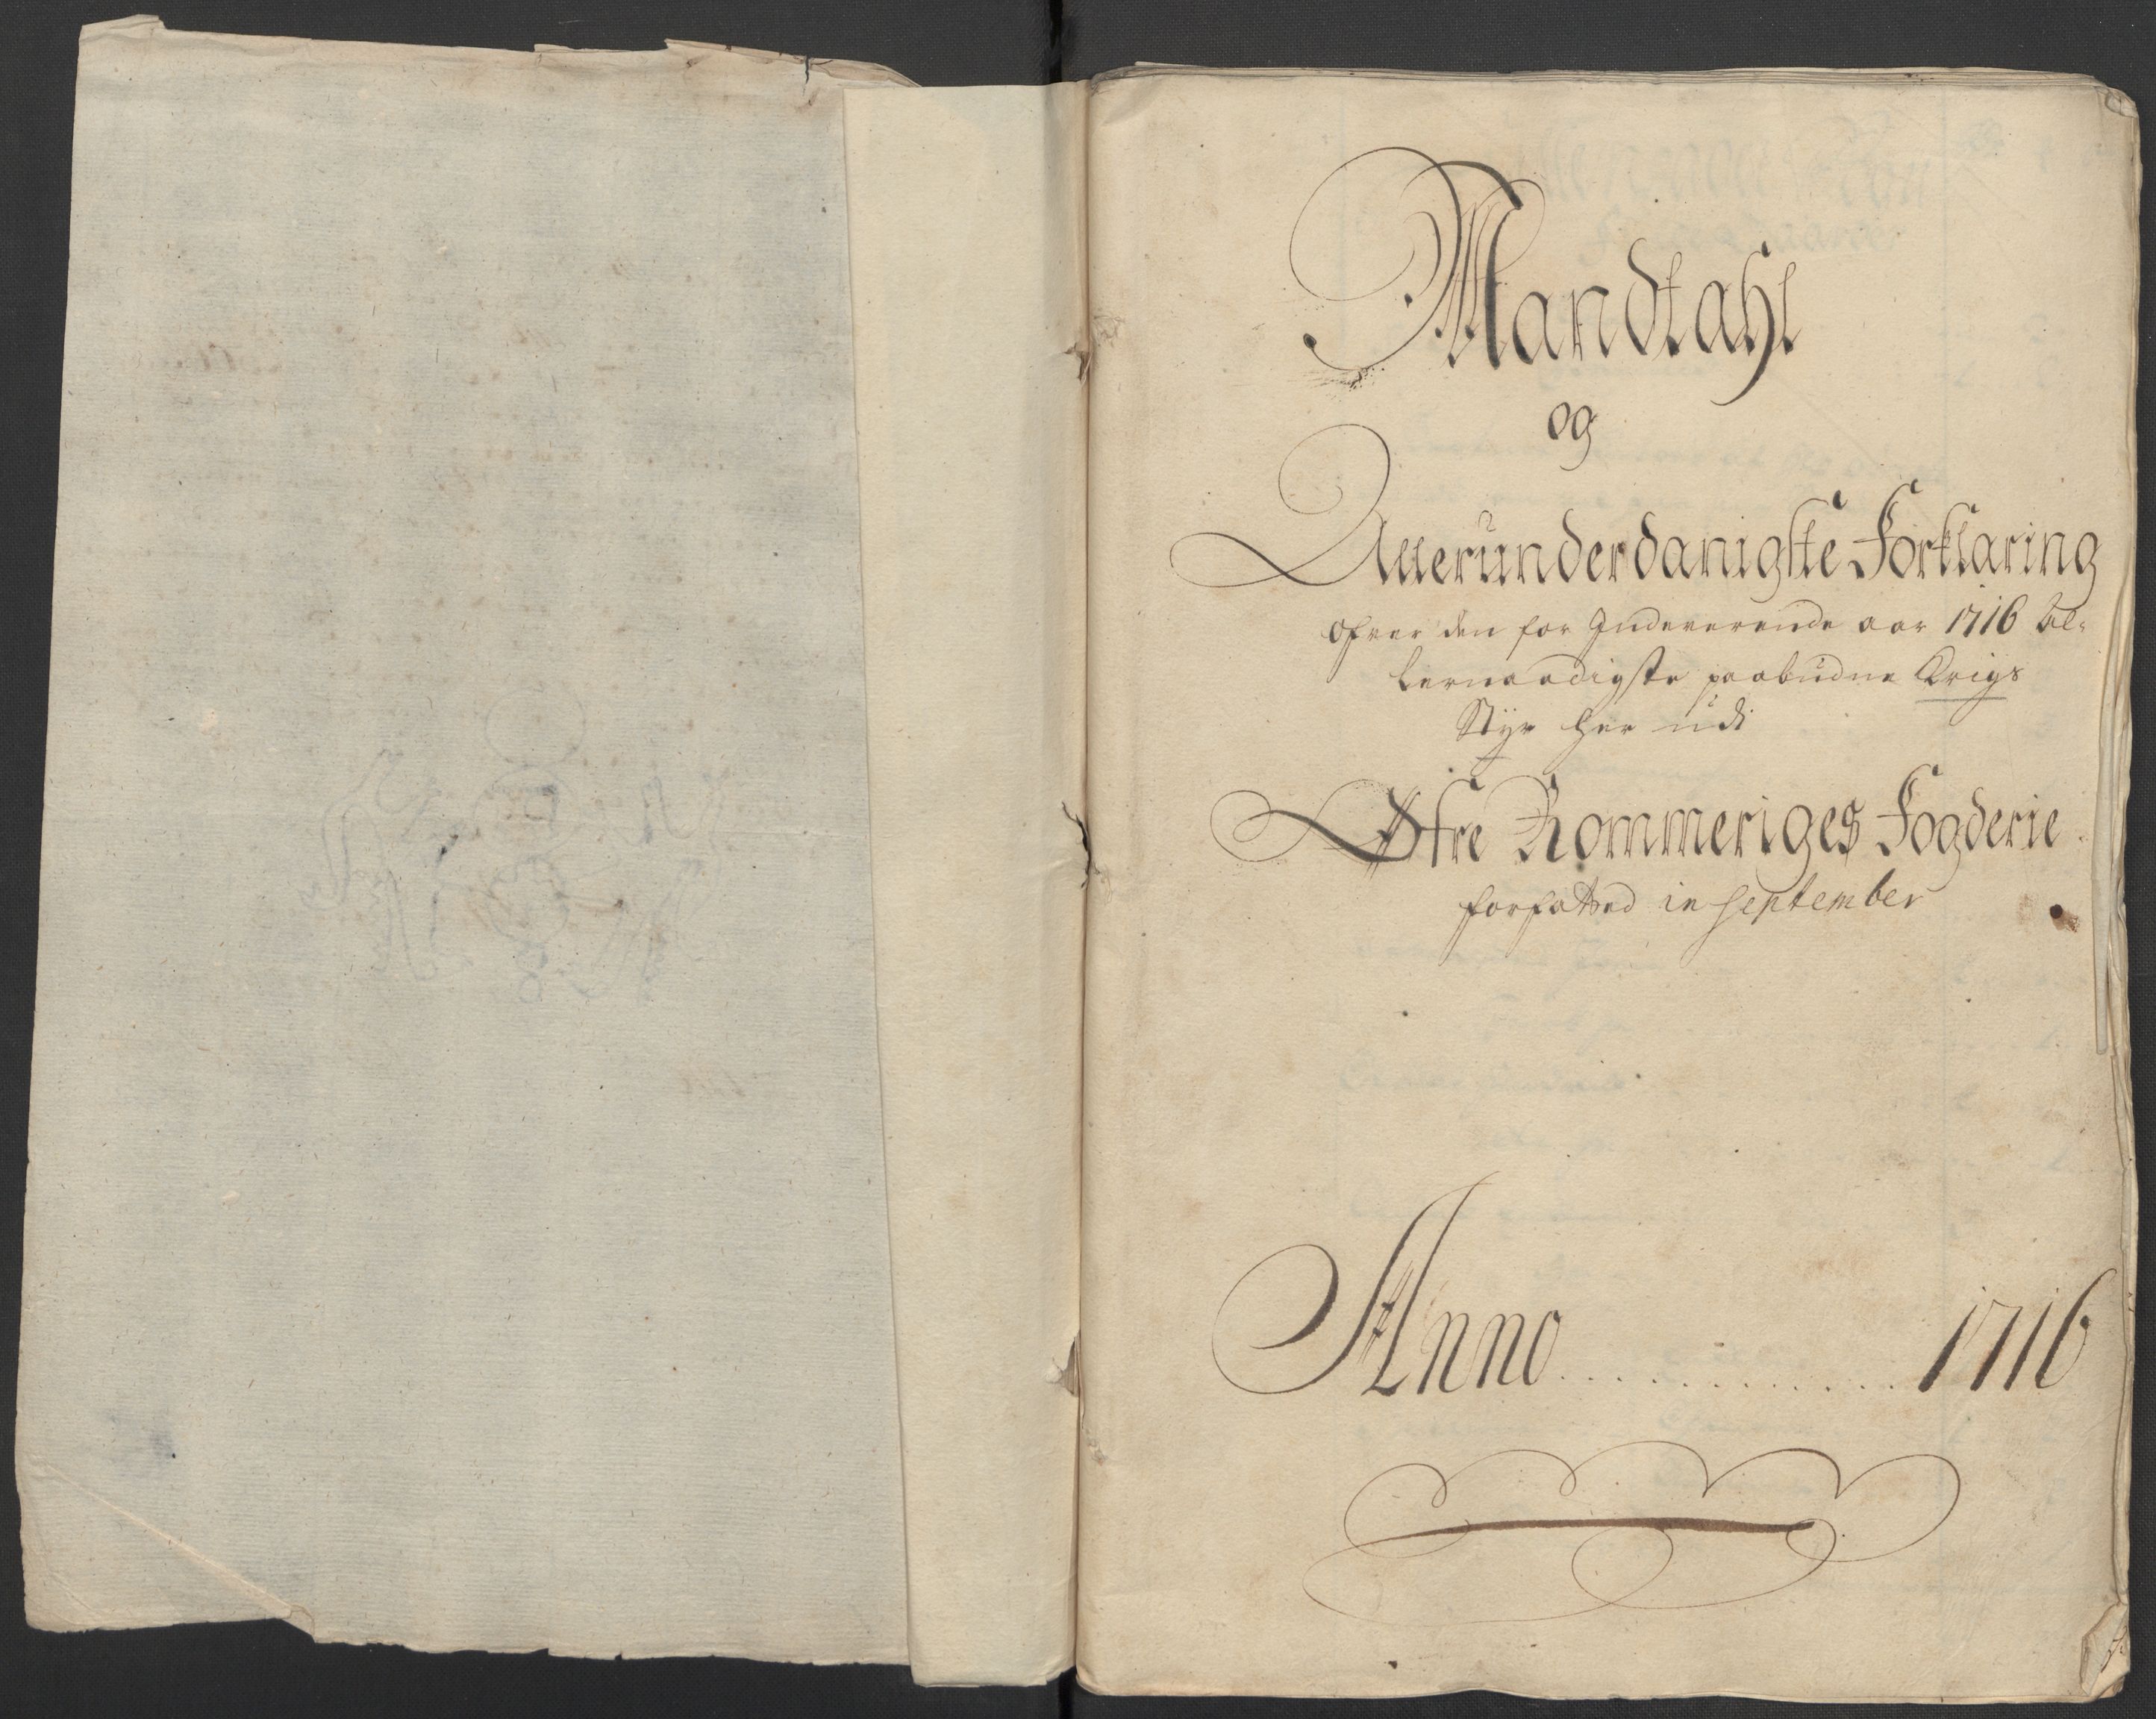 Mandtahl
og
Allerunderdanigste Forklaring
ofver den for Indeverende aar 1716 Al-
lernaadigste paabudne Krigs
Styr her udi
Øfre Rommeriges Fogderie
forfatted in september
Anno ............ 1716